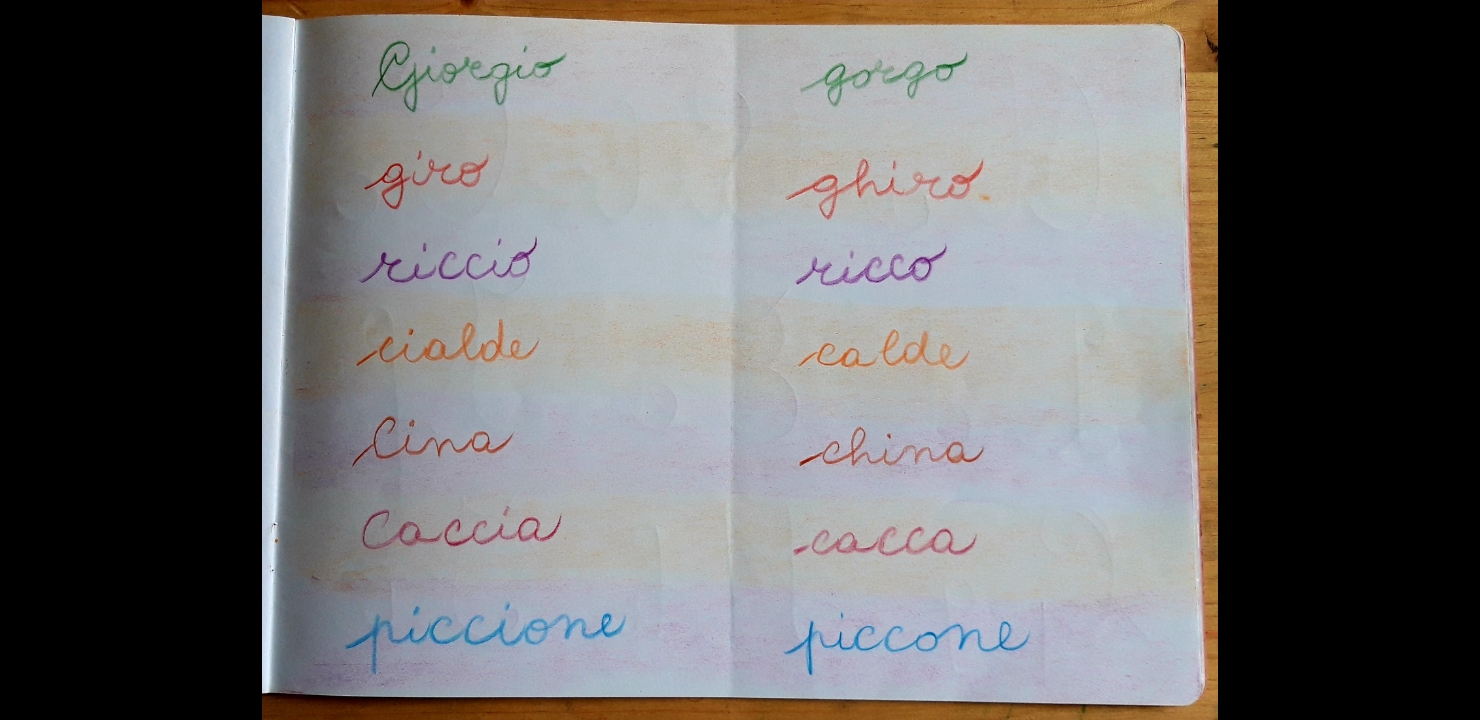 Giorgio gorgo
giro ghiro
riccio ricco
cialde calde
Cina china
Caccia cacca
piccione piccone